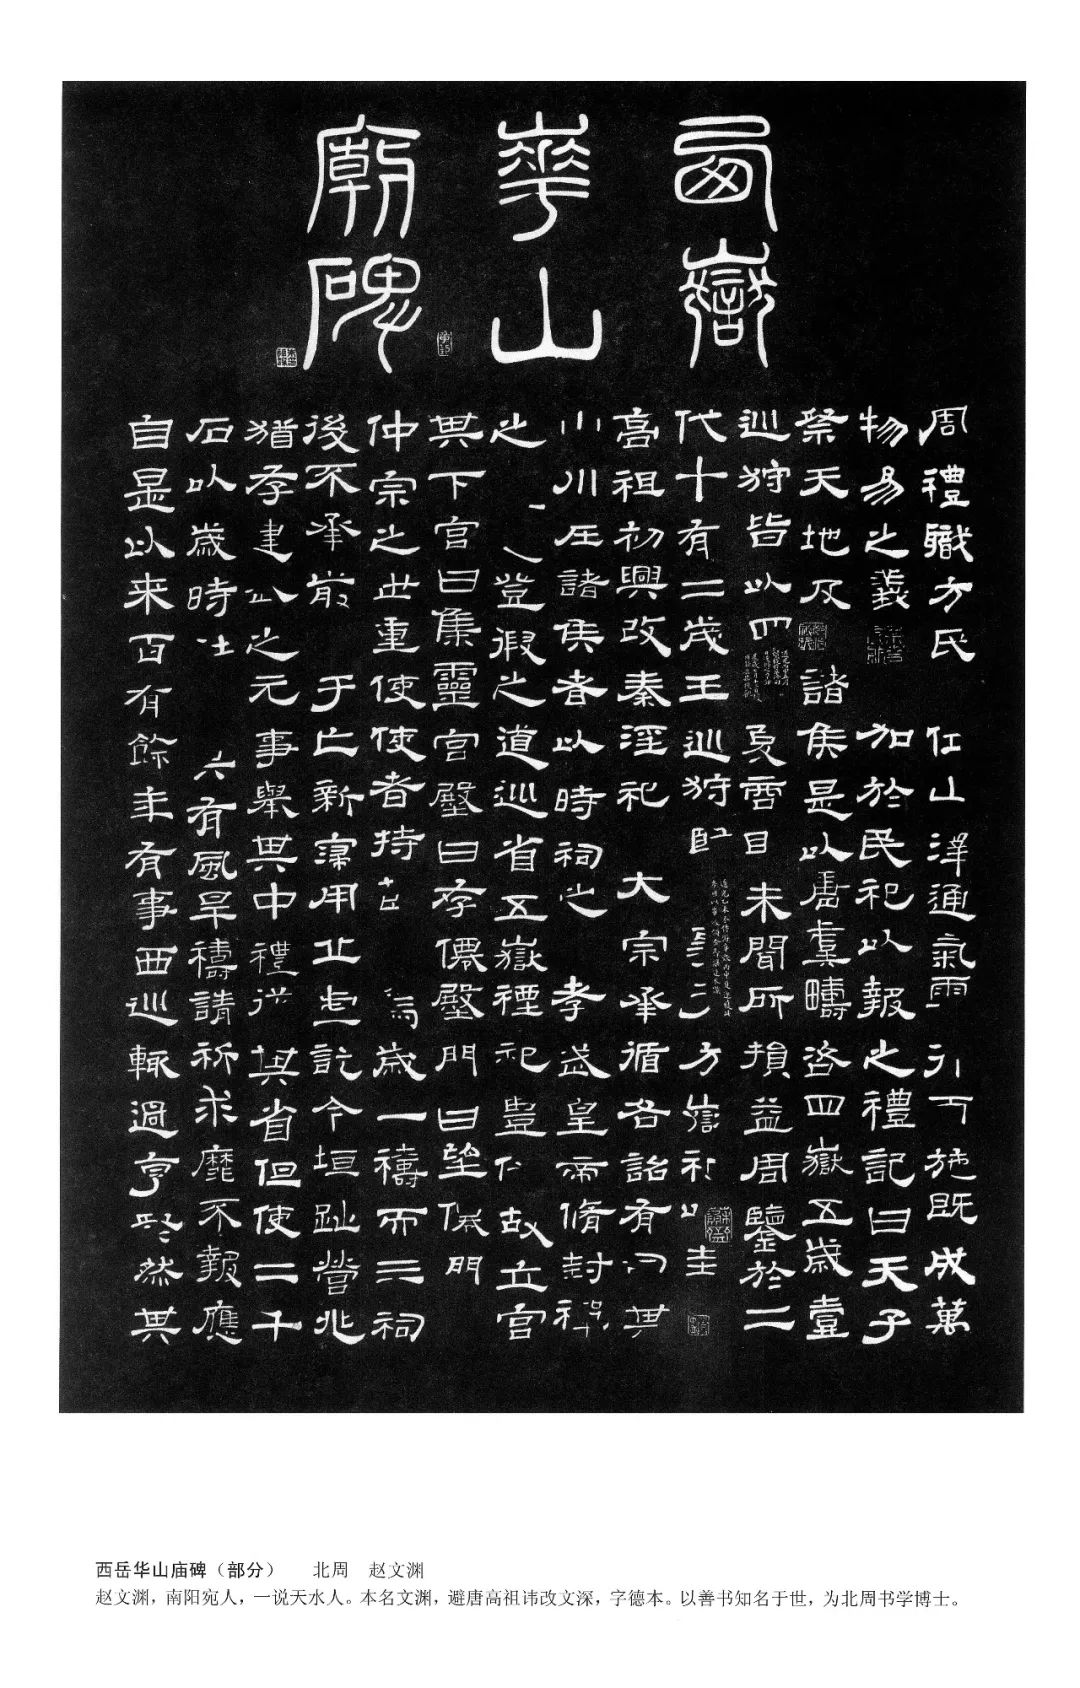 西嶽
華山
廟碑
周禮職方氏 山澤通氣雨 施既成萬
物易之義 加於民祀以報之禮記曰天子
祭天地及 諸侯是以唐虞疇咨四嶽五歲壹
巡狩皆以四 夏商 未聞所損益周鑒於二
代十有二歲王巡狩 方嶽 圭
高祖初興改秦淫祀 大宗承循各詔有 其
山川在諸侯者以時祠之 孝武皇帝脩封禪
之 登徦之道巡省五嶽禋祀豐 故立宮
其下宮曰集靈宮殿曰存僊殿門曰望僊門
仲宗之世重使使者持 歲一禱而三祠
後不承前 于亡新寖用丘虛訖今垣趾營兆
猶存建 之元事舉其中禮從其省但使二千
石以歲時 有風旱禱請祈求靡不報應
自是以来百有餘年有事西巡輒過亨 然其
西岳华山庙碑（部分） 北周 赵文渊
赵文渊，南阳宛人，一说天水人。本名文渊，避唐高祖讳改文深，字德本。以善书知名于世，为北周书学博士。